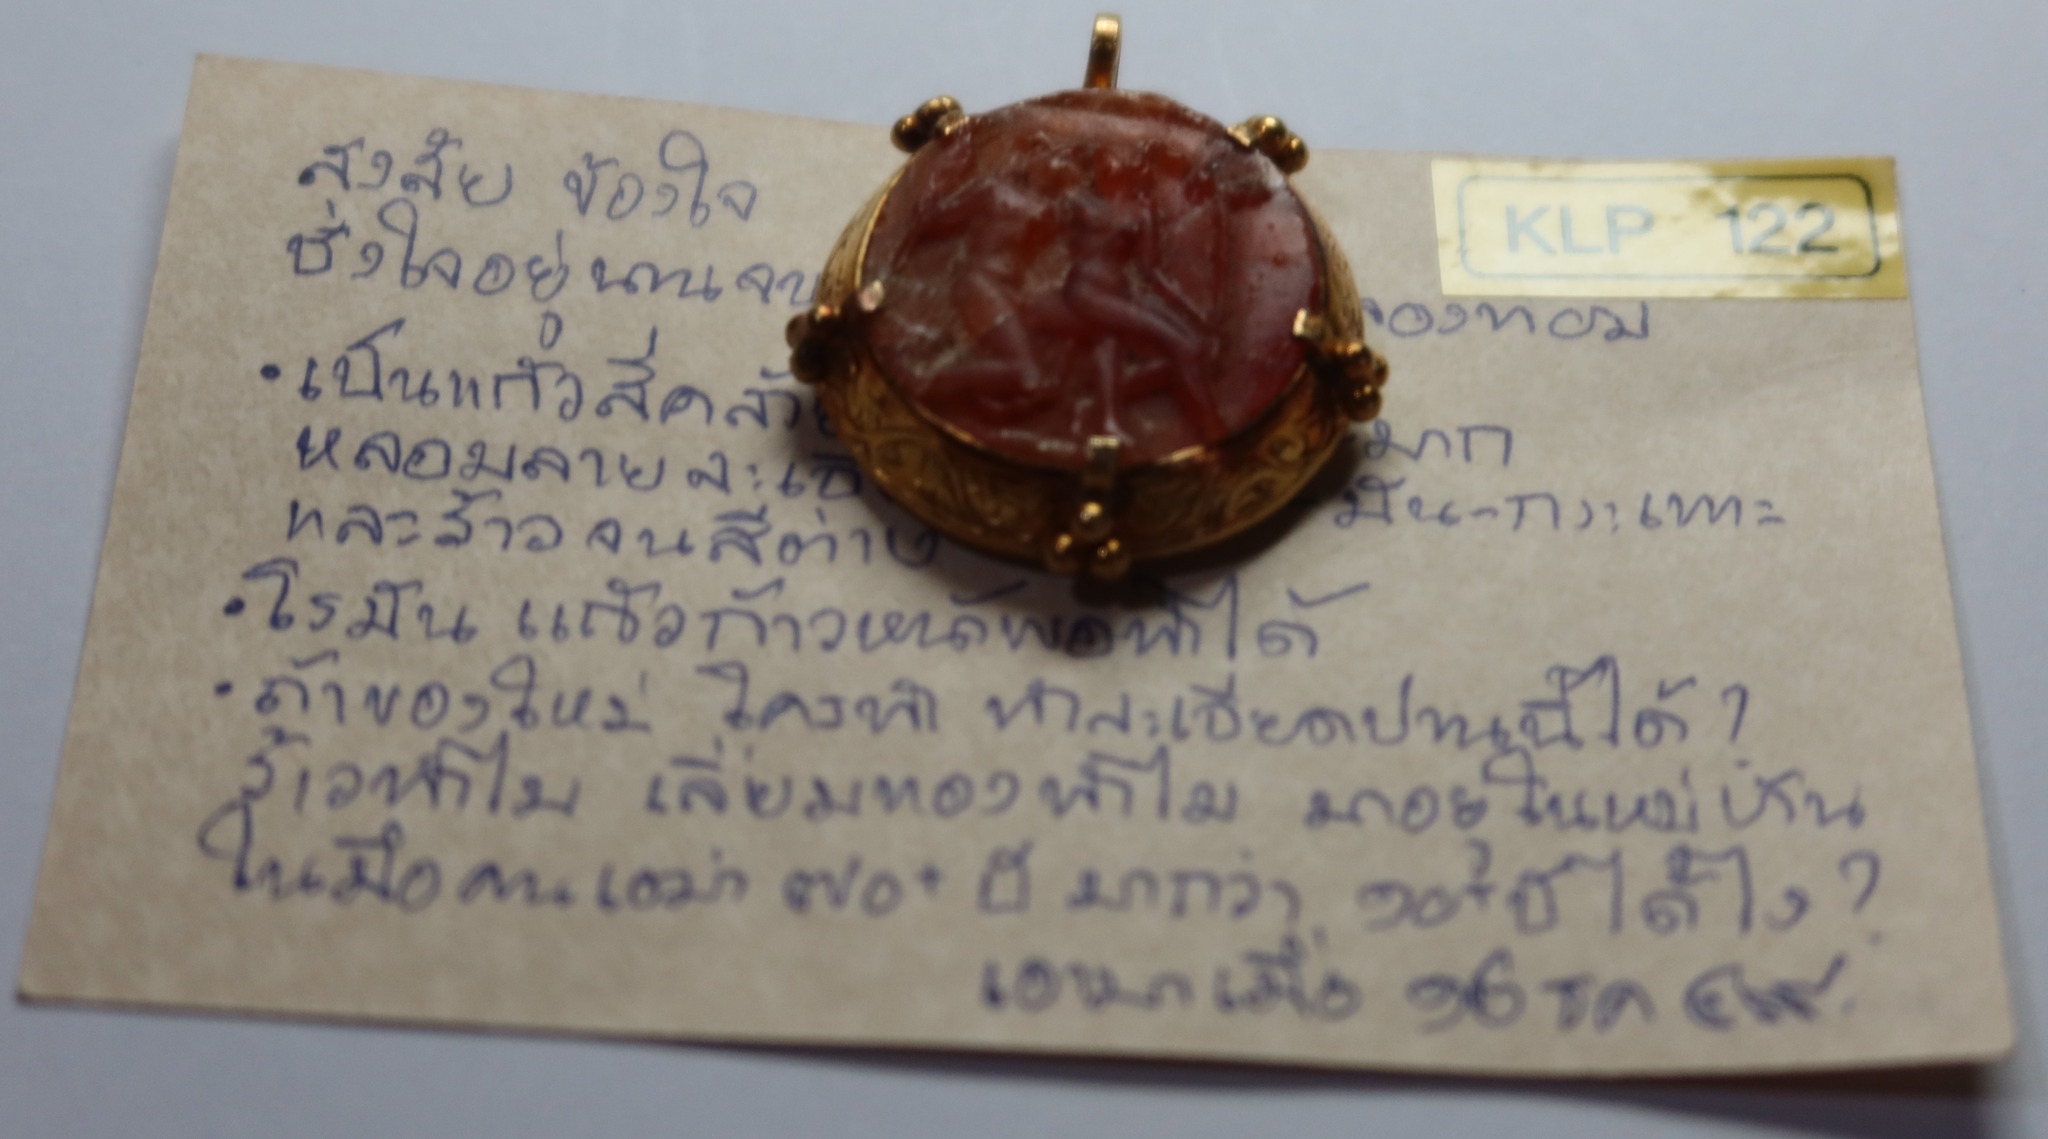 สงสัย ข้องใจ
KLP 122
ชั่งใจอยู่นานจน
ของทอม
• เป็นแก้วสีคล้าย
มาก
หลอมลายละเอี
มัน-กะเทาะ
และร้าวจนสีต่าง
• โรมัน แก้วก้าวหน้าพอทำได้
• ถ้าของใหม่ ใครทำ ทำละเอียดปานนี้ได้?
ร้าวทำไม เลี่ยมทองทำไม มาอยู่ในหมู่บ้าน
ในมือคนเฒ่า ๗๐+ ปี มากว่า ๑๐+ ปี ได้ไง?
เอามาเมื่อ ๑๖ ธค ๔๙